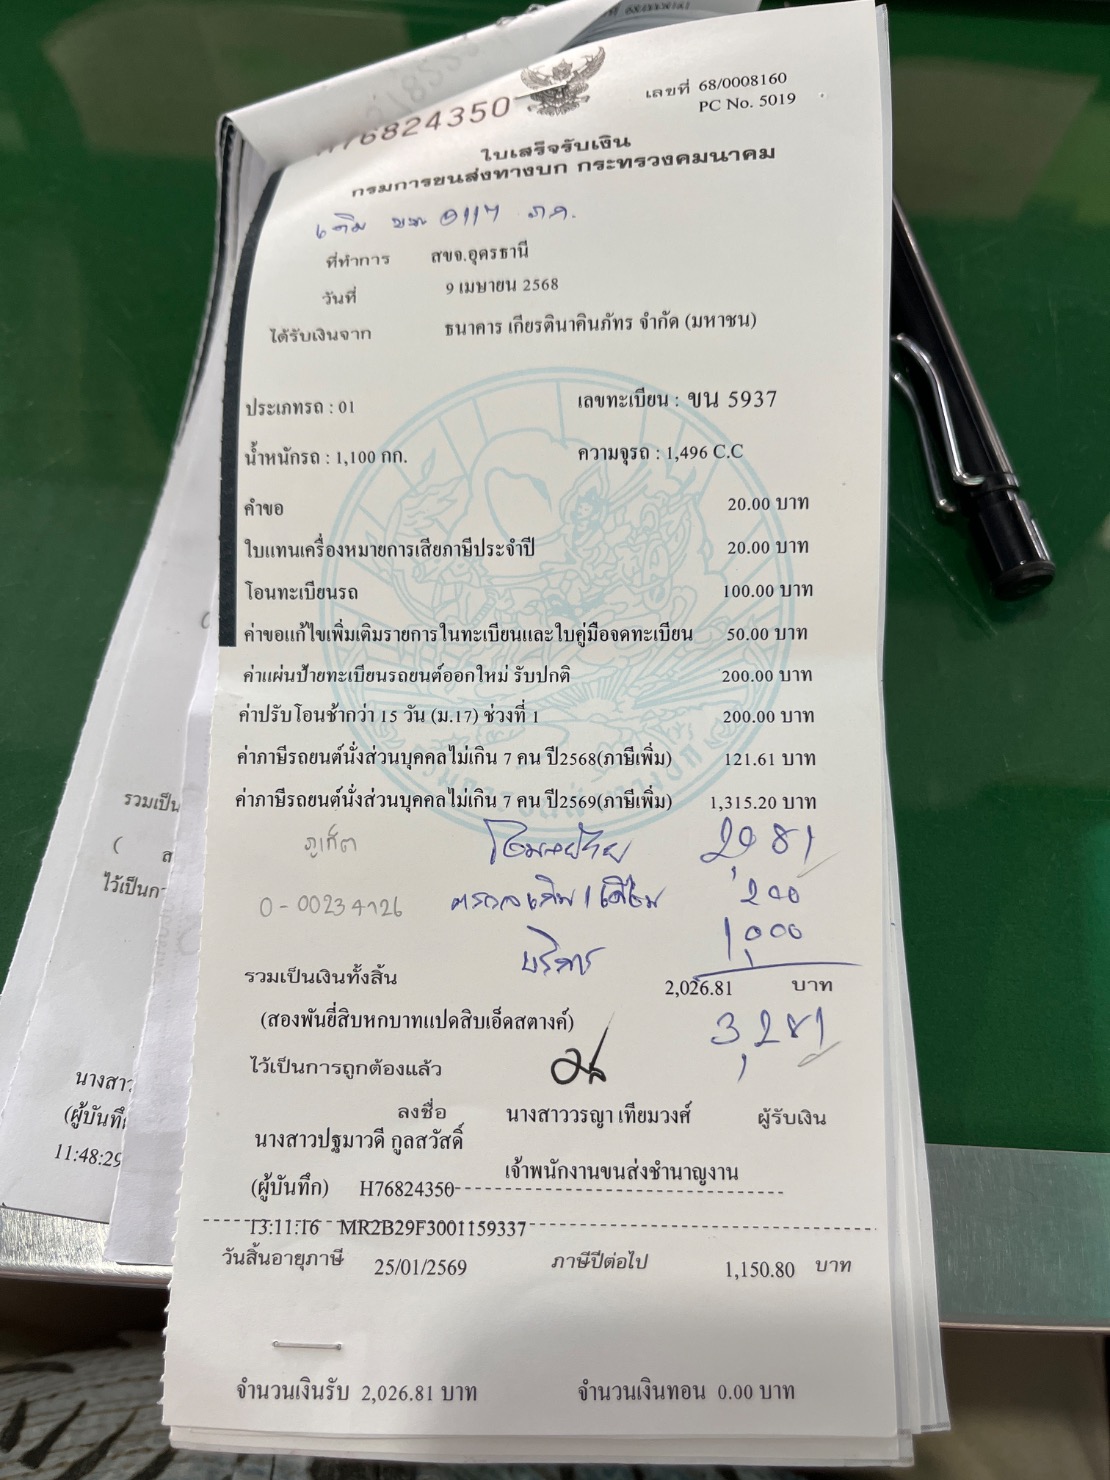 H76824350
เลขที่ 68/0008160
PC No. 5019
ใบเสร็จรับเงิน
กรมการขนส่งทางบก กระทรวงคมนาคม
เดิม ขน 9117 ภก.
ที่ทำการ สขจ.อุดรธานี
วันที่ 9 เมษายน 2568
ได้รับเงินจาก ธนาคาร เกียรตินาคินภัทร จำกัด (มหาชน)
ประเภทรถ : 01 เลขทะเบียน : ขน 5937
น้ำหนักรถ : 1,100 กก. ความจุรถ : 1,496 C.C
คำขอ 20.00 บาท
ใบแทนเครื่องหมายการเสียภาษีประจำปี 20.00 บาท
โอนทะเบียนรถ 100.00 บาท
ค่าขอแก้ไขเพิ่มเติมรายการในทะเบียนและใบคู่มือจดทะเบียน 50.00 บาท
ค่าแผ่นป้ายทะเบียนรถยนต์ออกใหม่ รับปกติ 200.00 บาท
ค่าปรับโอนช้ากว่า 15 วัน (ม.17) ช่วงที่ 1 200.00 บาท
ค่าภาษีรถยนต์นั่งส่วนบุคคลไม่เกิน 7 คน ปี2568(ภาษีเพิ่ม) 121.61 บาท
ค่าภาษีรถยนต์นั่งส่วนบุคคลไม่เกิน 7 คน ปี2569(ภาษีเพิ่ม) 1,315.20 บาท
ภูเก็ต
0-00234126 200
บริการ 1,000
รวมเป็นเงินทั้งสิ้น 2,026.81 บาท
(สองพันยี่สิบหกบาทแปดสิบเอ็ดสตางค์) 3,281
ไว้เป็นการถูกต้องแล้ว
ลงชื่อ นางสาววรญา เทียมวงศ์ ผู้รับเงิน
นางสาวปฐมาวดี กูลสวัสดิ์
เจ้าพนักงานขนส่งชำนาญงาน
(ผู้บันทึก) H76824350
13:11:16 MR2B29F3001159337
วันสิ้นอายุภาษี 25/01/2569 ภาษีปีต่อไป 1,150.80 บาท
จำนวนเงินรับ 2,026.81 บาท จำนวนเงินทอน 0.00 บาท
รวมเป็น
ไว้เป็น
นางสาว
(ผู้บันทึ
11:48:29